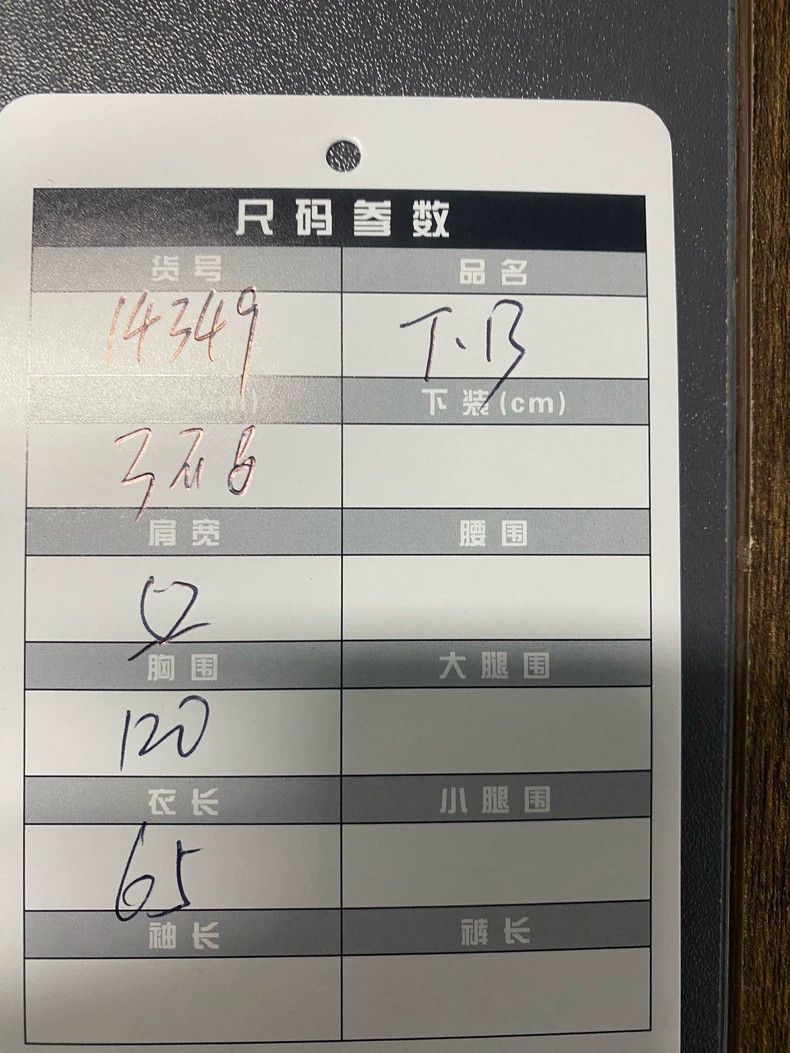 尺码参数
货号 品名
14349 T.B
下装(cm)
肩宽 腰围
胸围 大腿围
120
衣长 小腿围
65
袖长 裤长